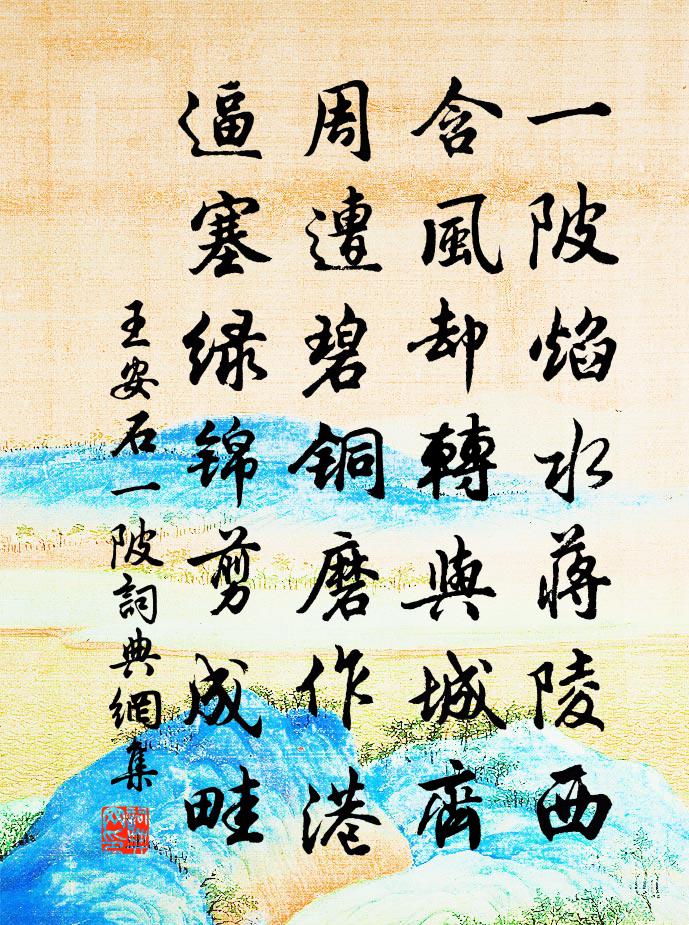 一陂焰水蒋陵西
含風却轉與城齊
周遭碧铜磨作港
逼塞绿锦剪成畦
王安石一陂詞典網集